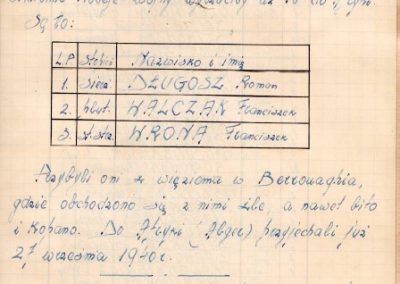 Są to:
L.P. Stopień Nazwisko i imię
1. Sierż. DŁUGOSZ Roman
2. plut. WALCZAK Franciszek
3. st.strz. WRONA Franciszek
Przybyli oni z więzienia w Berrouaghia,
gdzie obchodzono się z nimi źle, a nawet bito
i kopano. Do (Abger) przyjechali już
27 września 1940r.